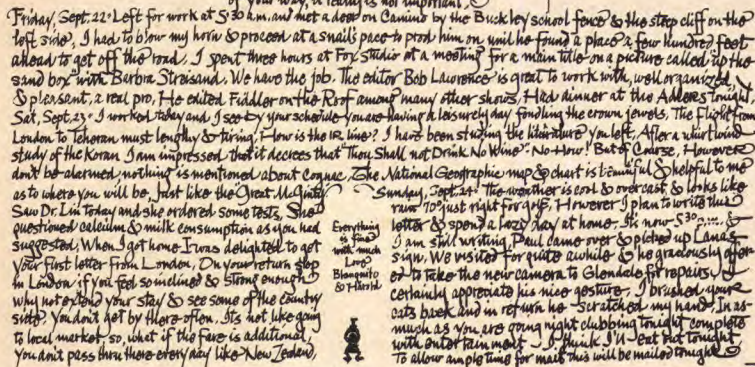 of your way, it really is not important,
Friday, Sept. 22. Left for work at 5:30 a.m. and met a deer on Camino by the Buckley school fence & the steep cliff on the
left side, I had to blow my horn & proceed at a snail's pace to prod him on until he found a place a few hundred feet
ahead to get off the road, I spent three hours at Fox Studio at a meeting for a main title on a picture called up the
sand box" with Barbra Streisand. We have the job. The editor Bob Lawrence is great to work with, well organized
& pleasant, a real pro, He edited Fiddler on the Roof among many other shows, Had dinner at the Adlers tonight
Sat, Sept. 23. I worked today and I see by your schedule you are having a leisurely day fondling the crown jewels, The flight from
London to Teheran must lengthy & tiring. How is the IR line? I have been studing the literature you left, After a whirlwind
study of the Koran, I am impressed that it decrees that "Thou Shall not Drink No Wine". No-How! But of Course, However
don't be alarmed, nothing is mentioned about Cognac, The National Geographic map & chart is beautiful & helpful to me
as to where you will be, Just like the Great McGinty.
Saw Dr. Lin today and she ordered some tests, She
questioned calcium & milk consumption as you had
suggested, When I got home I was delighted to get
your first letter from London, On your return stop
in London, if you feel so inclined & strong enough
why not extend your stay & see some of the country
side. You don't get by there often. It's not like going
to local market, so, what if the fare is additional,
you don't pass thru there every day like New Zealand,
Everything
is fine
with much
Love
Blanquito
& Harold
Sunday, Sept. 24. The weather is cool & overcast & looks like
rain 70° just right for golf, However I plan to write this
letter & spend a lazy day at home. It's now 5:30 p.m. &
I am still writing, Paul came over & picked up Lanas
sign, We visited for quite awhile & he graciously offer-
ed to take the new camera to Glendale for repairs, I
certainly appreciate his nice gesture. I brushed your
cats back and in return he scratched my hand, In as-
much as you are going night clubbing tonight complete
with entertainment - I think I'll eat out tonight
To allow ample time for mail this will be mailed tonight